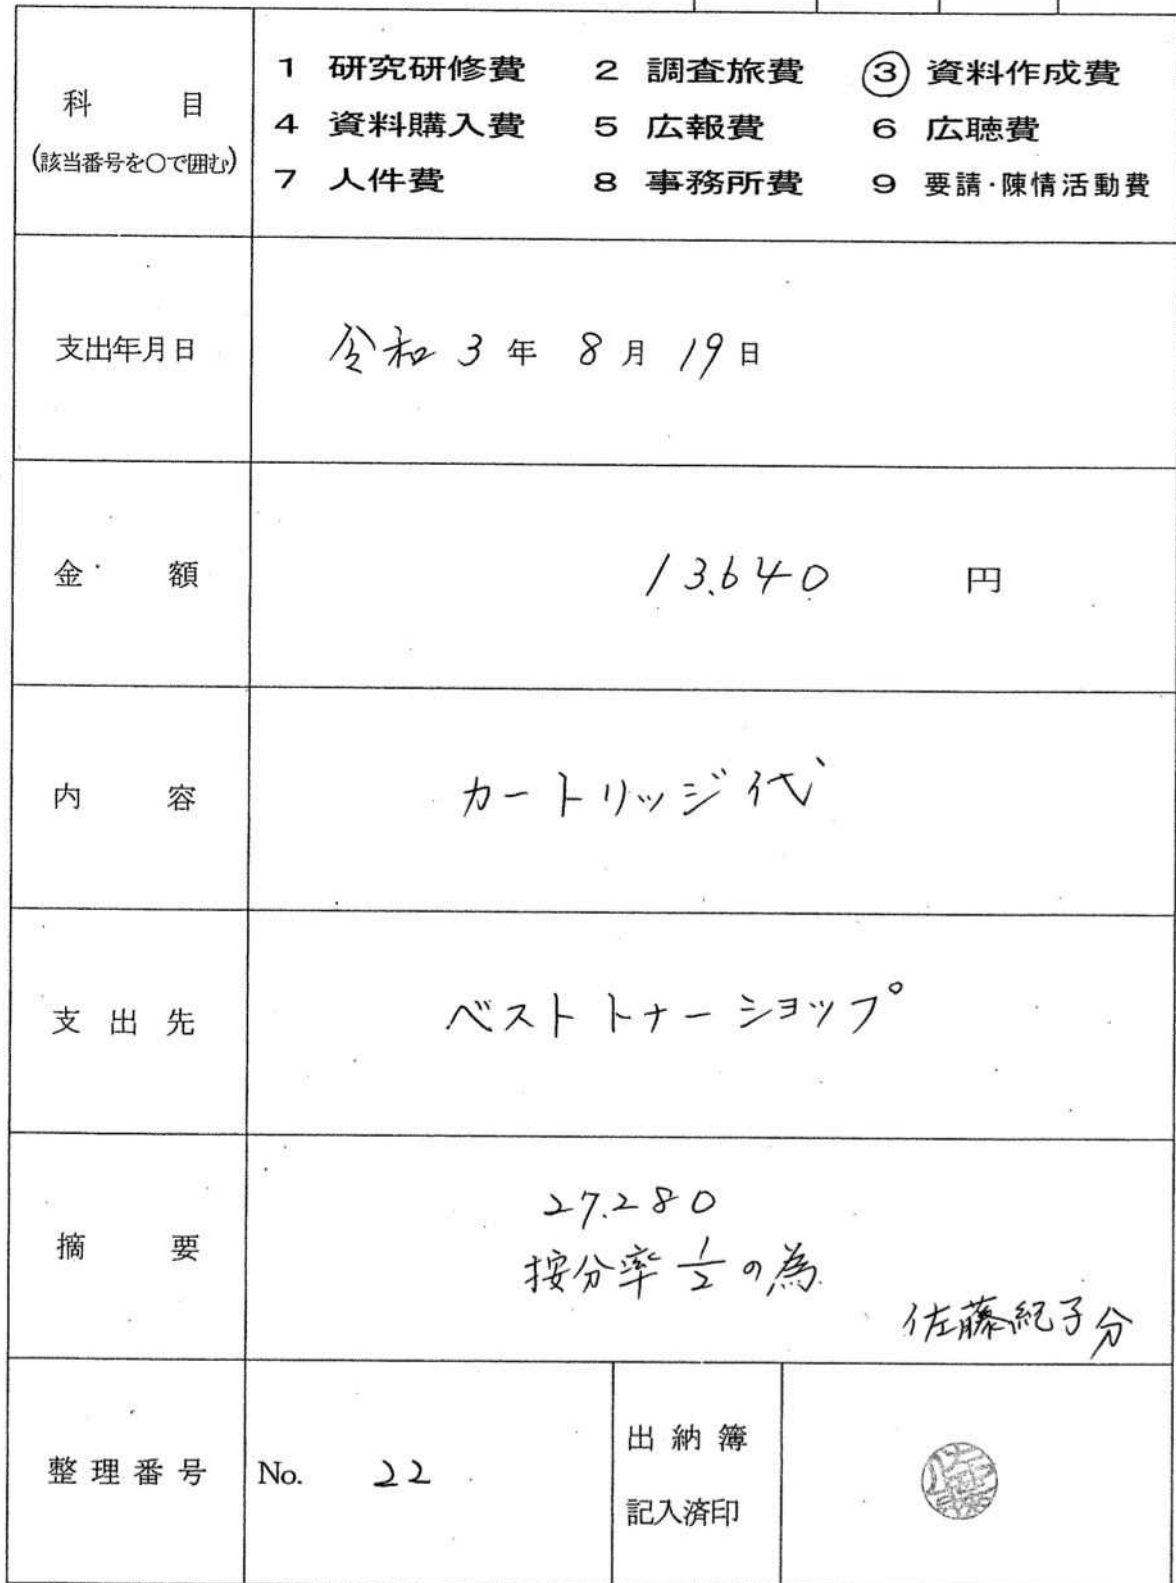 科 目
(該当番号を○で囲む)
1 研究研修費 2 調査旅費 ③ 資料作成費
4 資料購入費 5 広報費 6 広聴費
7 人件費 8 事務所費 9 要請・陳情活動費
支出年月日
令和 3 年 8 月 19 日
金 額
13,640 円
内 容
カートリッジ代
支 出 先
ベストトナーショップ
摘 要
27,280
按分率 1/2 の為
佐藤紀子分
整 理 番 号
No. 22
出 納 簿
記入済印
佐藤